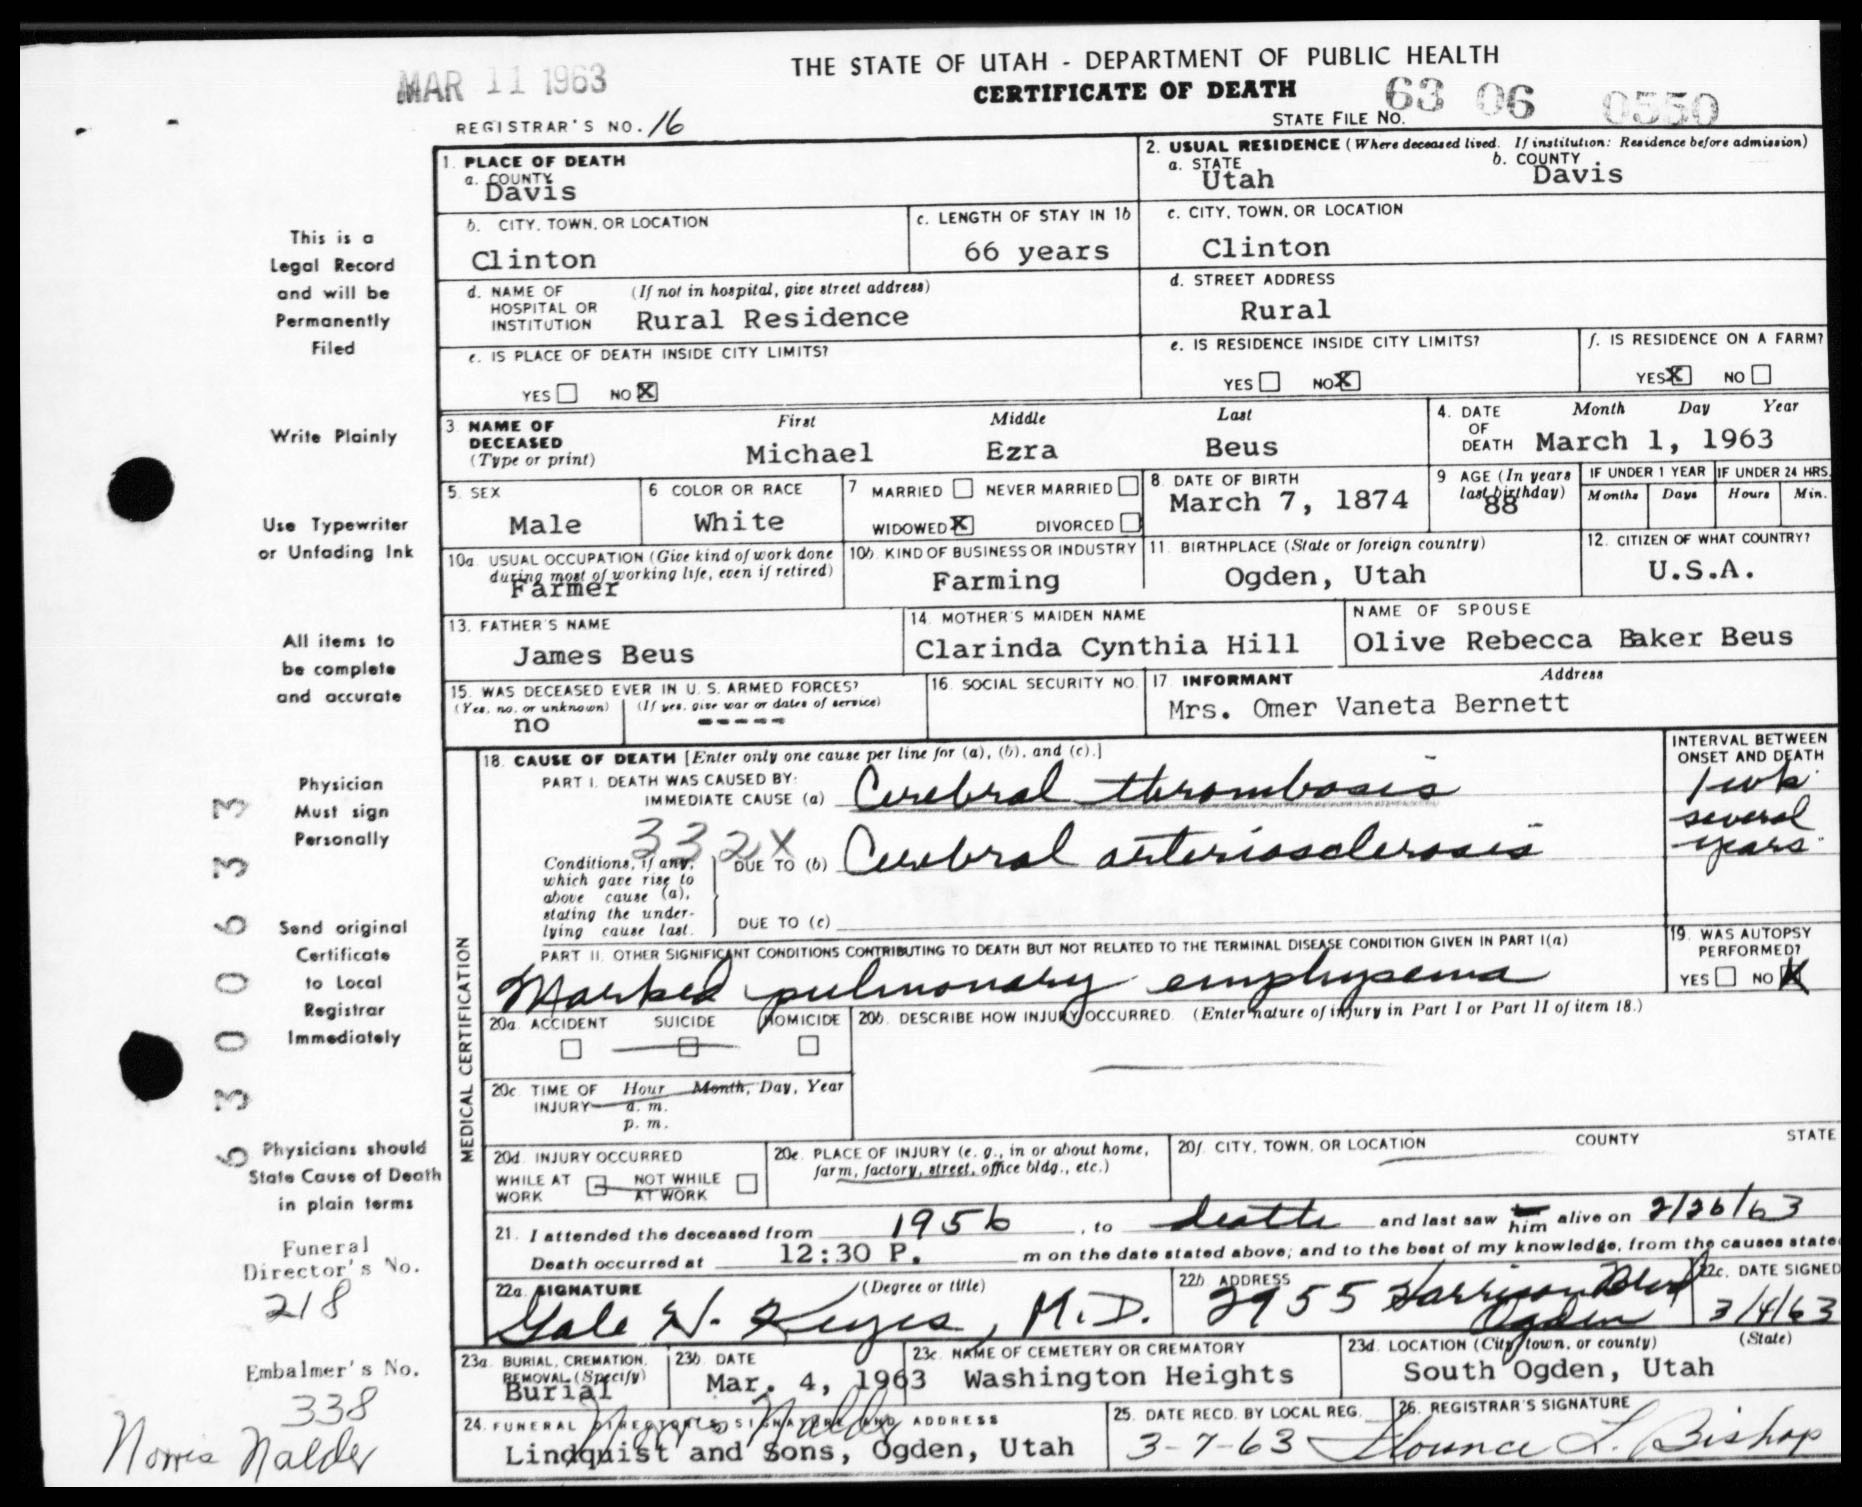 MAR 11 1963
THE STATE OF UTAH - DEPARTMENT OF PUBLIC HEALTH
CERTIFICATE OF DEATH
REGISTRAR'S NO. 16
STATE FILE NO. 63 06 0550
1. PLACE OF DEATH
a. COUNTY
Davis
2. USUAL RESIDENCE (Where deceased lived. If institution: Residence before admission)
a. STATE
Utah
b. COUNTY
Davis
b. CITY, TOWN, OR LOCATION
Clinton
c. LENGTH OF STAY IN 1b
66 years
c. CITY, TOWN, OR LOCATION
Clinton
d. NAME OF HOSPITAL OR INSTITUTION (If not in hospital, give street address)
Rural Residence
d. STREET ADDRESS
Rural
e. IS PLACE OF DEATH INSIDE CITY LIMITS?
YES NO X
e. IS RESIDENCE INSIDE CITY LIMITS?
YES NO X
f. IS RESIDENCE ON A FARM?
YES X NO
3. NAME OF DECEASED (Type or print)
First Middle Last
Michael Ezra Beus
4. DATE OF DEATH
Month Day Year
March 1, 1963
5. SEX
Male
6 COLOR OR RACE
White
7 MARRIED NEVER MARRIED
WIDOWED X DIVORCED
8. DATE OF BIRTH
March 7, 1874
9 AGE (In years last birthday)
88
IF UNDER 1 YEAR
Months Days
IF UNDER 24 HRS.
Hours Min.
10a. USUAL OCCUPATION (Give kind of work done during most of working life, even if retired)
Farmer
10b. KIND OF BUSINESS OR INDUSTRY
Farming
11. BIRTHPLACE (State or foreign country)
Ogden, Utah
12. CITIZEN OF WHAT COUNTRY?
U.S.A.
13. FATHER'S NAME
James Beus
14. MOTHER'S MAIDEN NAME
Clarinda Cynthia Hill
NAME OF SPOUSE
Olive Rebecca Baker Beus
15. WAS DECEASED EVER IN U.S. ARMED FORCES?
(Yes, no, or unknown) (If yes, give war or dates of service)
no -----
16. SOCIAL SECURITY NO.
17. INFORMANT Address
Mrs. Omer Vaneta Bernett
18. CAUSE OF DEATH [Enter only one cause per line for (a), (b), and (c).]
PART I. DEATH WAS CAUSED BY:
IMMEDIATE CAUSE (a) Cerebral thrombosis
INTERVAL BETWEEN ONSET AND DEATH
1 wk
332X
Conditions, if any, which gave rise to above cause (a), stating the underlying cause last.
DUE TO (b) Cerebral arteriosclerosis
several years
DUE TO (c)
PART II. OTHER SIGNIFICANT CONDITIONS CONTRIBUTING TO DEATH BUT NOT RELATED TO THE TERMINAL DISEASE CONDITION GIVEN IN PART I(a)
Marked pulmonary emphysema
19. WAS AUTOPSY PERFORMED?
YES NO X
MEDICAL CERTIFICATION
20a. ACCIDENT SUICIDE HOMICIDE
20b. DESCRIBE HOW INJURY OCCURRED. (Enter nature of injury in Part I or Part II of item 18.)
20c. TIME OF INJURY Hour Month, Day, Year
a. m.
p. m.
20d. INJURY OCCURRED
WHILE AT WORK NOT WHILE AT WORK
20e. PLACE OF INJURY (e. g., in or about home, farm, factory, street, office bldg., etc.)
20f. CITY, TOWN, OR LOCATION COUNTY STATE
21. I attended the deceased from 1956, to death and last saw him alive on 2/26/63
Death occurred at 12:30 P. m on the date stated above; and to the best of my knowledge, from the causes state
22a. SIGNATURE (Degree or title)
Gale W. Keyes, M.D.
22b. ADDRESS
2955 Harrison Blvd
Ogden
22c. DATE SIGNED
3/4/63
23a. BURIAL, CREMATION, REMOVAL (Specify)
Burial
23b. DATE
Mar. 4, 1963
23c. NAME OF CEMETERY OR CREMATORY
Washington Heights
23d. LOCATION (City, town, or county) (State)
South Ogden, Utah
24. FUNERAL DIRECTOR'S SIGNATURE AND ADDRESS
Norris Nalder
Lindquist and Sons, Ogden, Utah
25. DATE RECD. BY LOCAL REG.
3-7-63
26. REGISTRAR'S SIGNATURE
Flounce L. Bishop
This is a
Legal Record
and will be
Permanently
Filed
Write Plainly
Use Typewriter
or Unfading Ink
All items to
be complete
and accurate
Physician
Must sign
Personally
Send original
Certificate
to Local
Registrar
Immediately
Physicians should
State Cause of Death
in plain terms
6 3 0 0 6 3 3
Funeral
Director's No.
218
Embalmer's No.
338
Norris Nalder